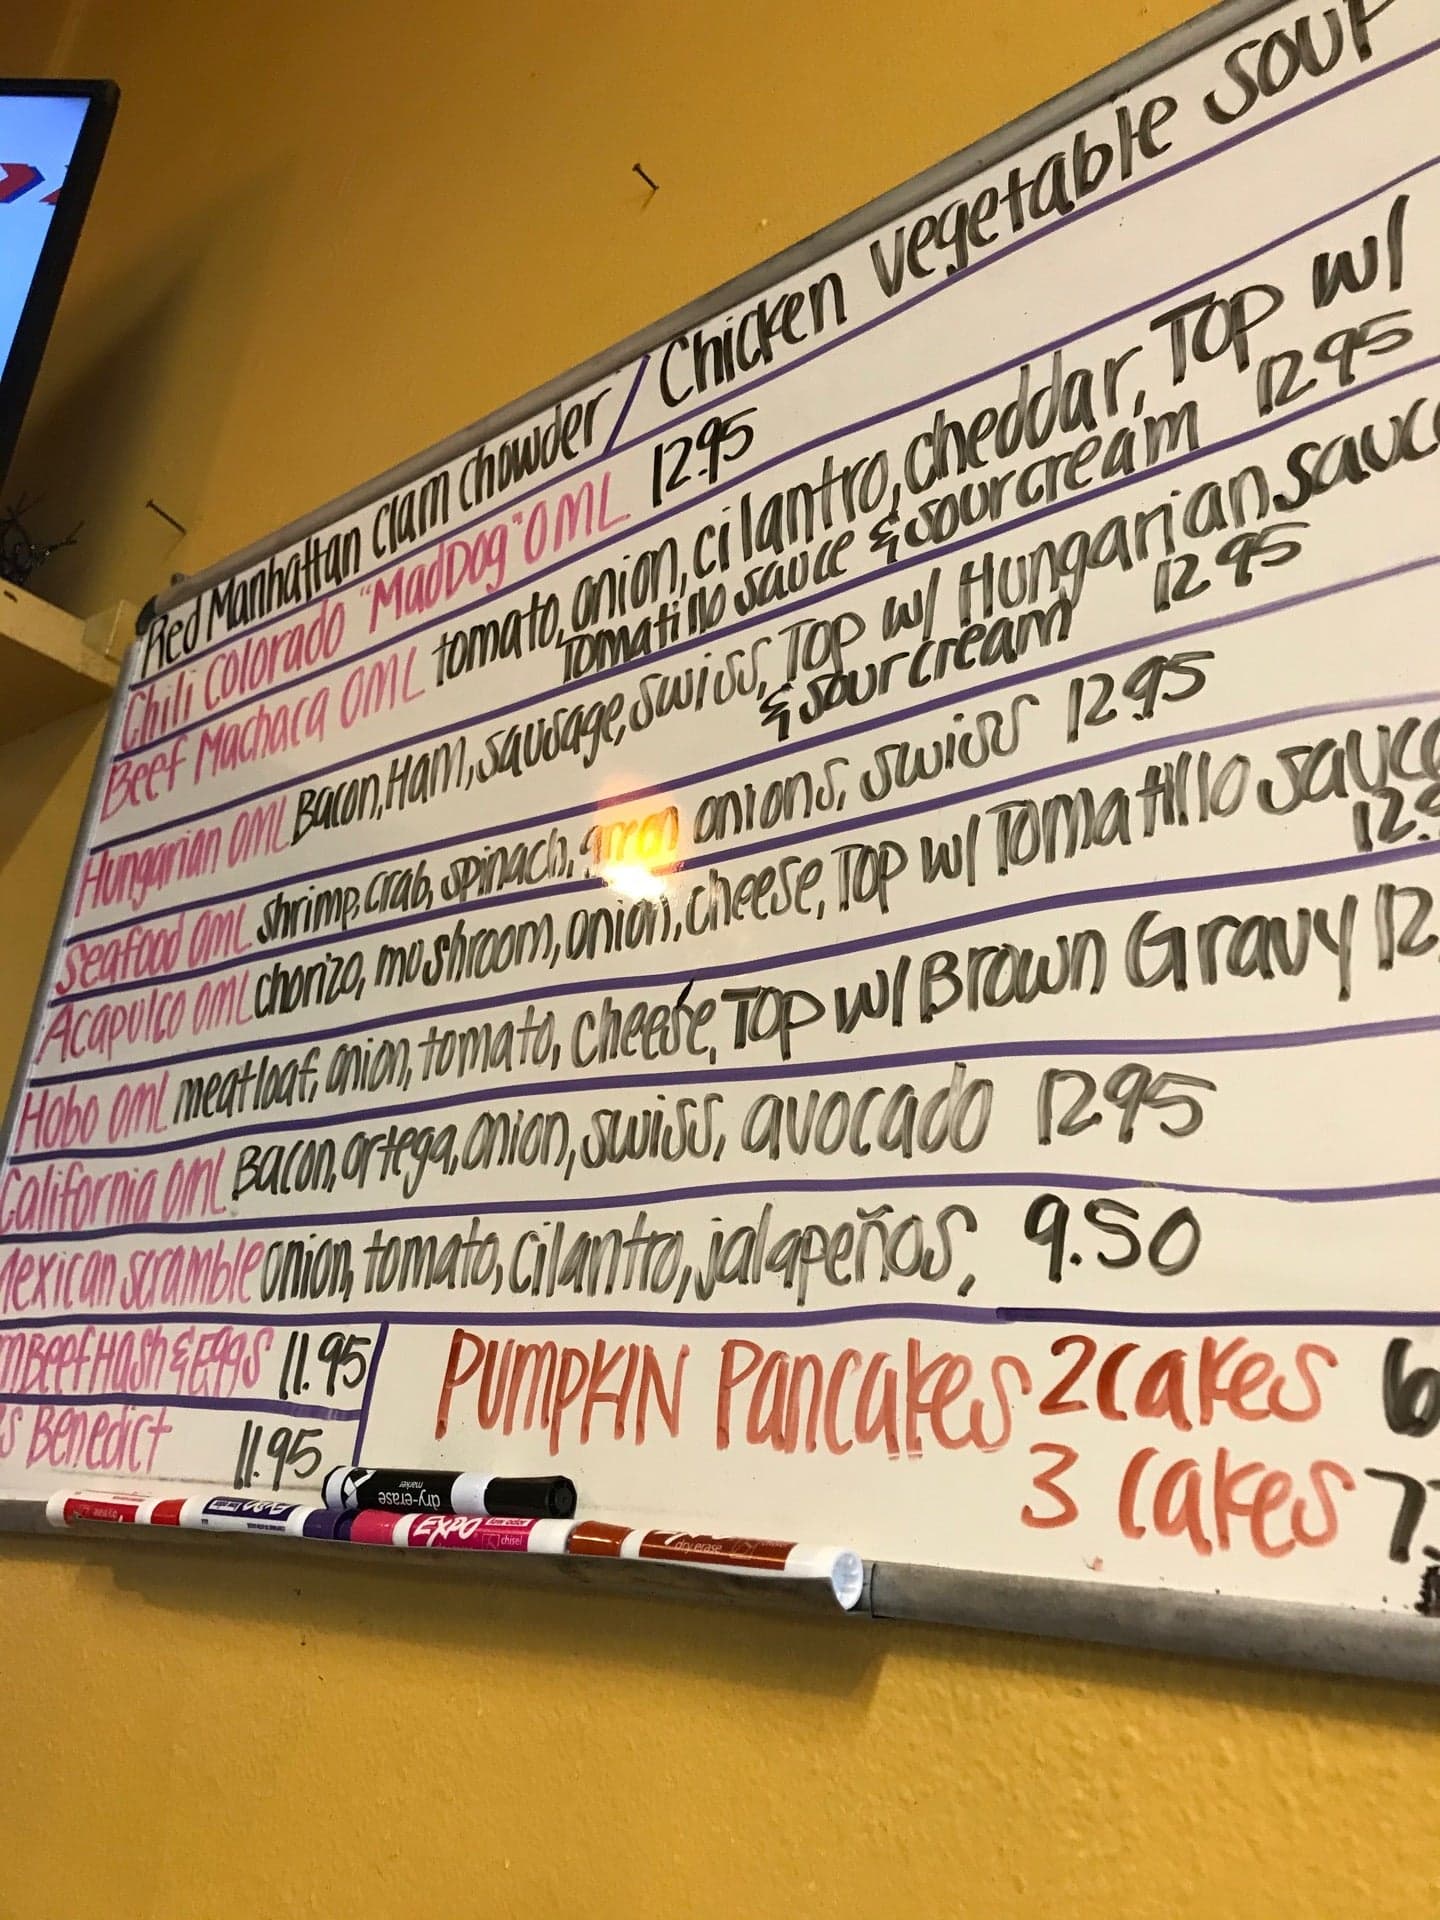 Red Manhattan Clam Chowder / Chicken Vegetable Soup
Chili Colorado "MadDog" OML 12.95
Beef Machaca OML tomato, onion, cilantro, cheddar, Top w/
Tomatillo sauce & sour cream 12.95
Hungarian OML Bacon, Ham, sausage, swiss, Top w/ Hungarian sauce
& sour cream 12.95
Seafood OML shrimp, crab, spinach, green onions, swiss 12.95
Acapulco OML chorizo, mushroom, onion, cheese, Top w/ Tomatillo sauce
12.9
Hobo OML meatloaf, onion, tomato, cheese, Top w/ Brown Gravy 12.
California OML Bacon, ortega, onion, swiss, avocado 12.95
Mexican scramble onion, tomato, cilantro, jalapeños, 9.50
Beef Hash & Eggs 11.95
Benedict 11.95
PUMPKIN Pancakes 2 cakes 6
3 cakes 7
dry-erase
marker
EXPO
EXPO low odor
chisel
dry erase